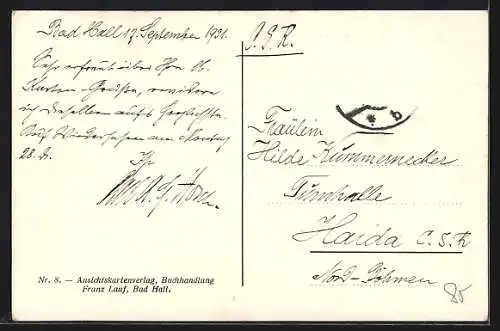 Bad Hall 17. September 1931.
Sehr erfreut über Ihre lb.
Karten-Grüße, erwidere
ich dieselben aufs herzlichste.
Auf Wiedersehen am Montag
28. d.
Ihr
Nr. 8. — Ansichtskartenverlag, Buchhandlung
Franz Lauf, Bad Hall.
Č.S.R.
* b
Fräulein
Hilde Kummernecker
Turnhalle
Haida Č.S.R
Nord-Böhmen
85